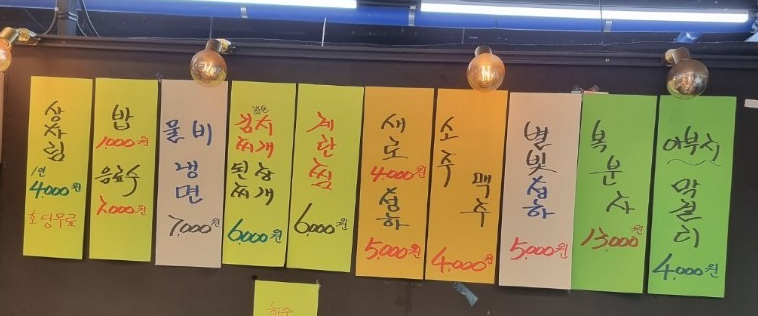 상차림
1인
4,000원
초딩무료
밥
1,000원
음료수
2,000원
물 비
냉면
7,000원
김치
찌개
된장
찌개
6,000원
계란찜
6,000원
새로
4,000원
청하
5,000원
소주
맥주
4,000원
별빛청하
5,000원
복분자
13,000원
아부지
막걸리
4,000원